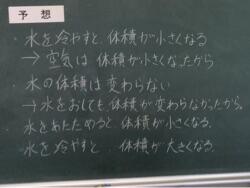 予想
・水を冷やすと、体積が小さくなる
→空気は体積が小さくなったから
・水の体積は変わらない
→水をおしても、体積が変わらなかったから。
・水をあたためると、体積が小さくなる。
水を冷やすと、体積が大きくなる。